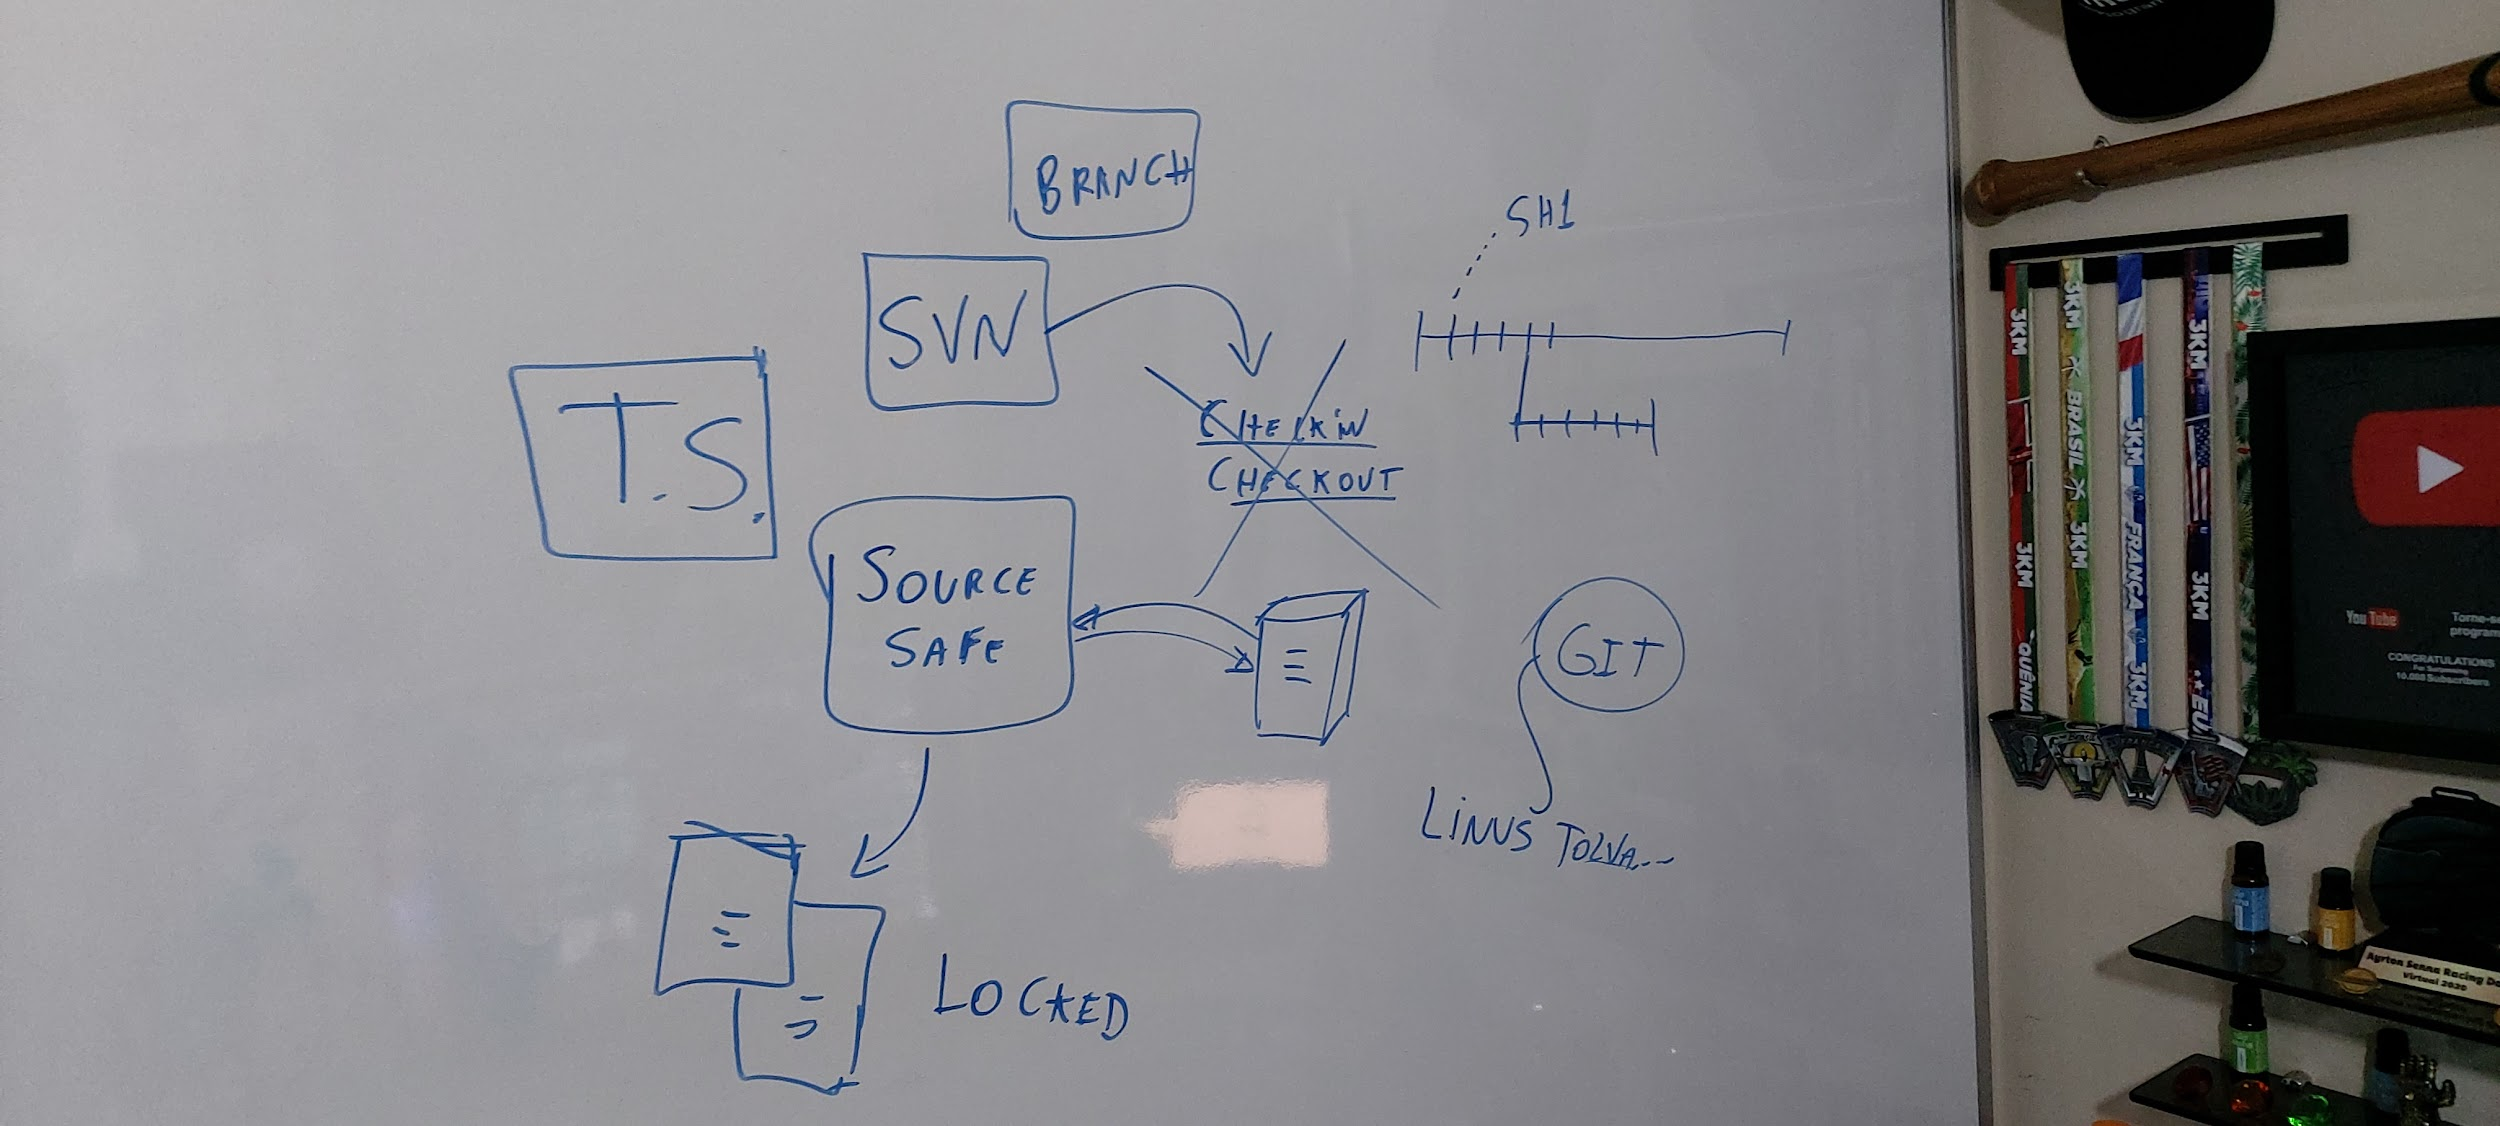 BRANCH
SH1
SVN
T.S.
CHECKIN
CHECKOUT
SOURCE
SAFE
GIT
LINUS TOLVA...
LOCKED
3KM
3KM
QUÊNIA
3KM
BRASIL
3KM
3KM
FRANÇA
3KM
3KM
3KM
EUA
YouTube
CONGRATULATIONS
For Surpassing
10.000 Subscribers
Torne-se
program
Ayrton Senna Racing Da
Virtual 2020